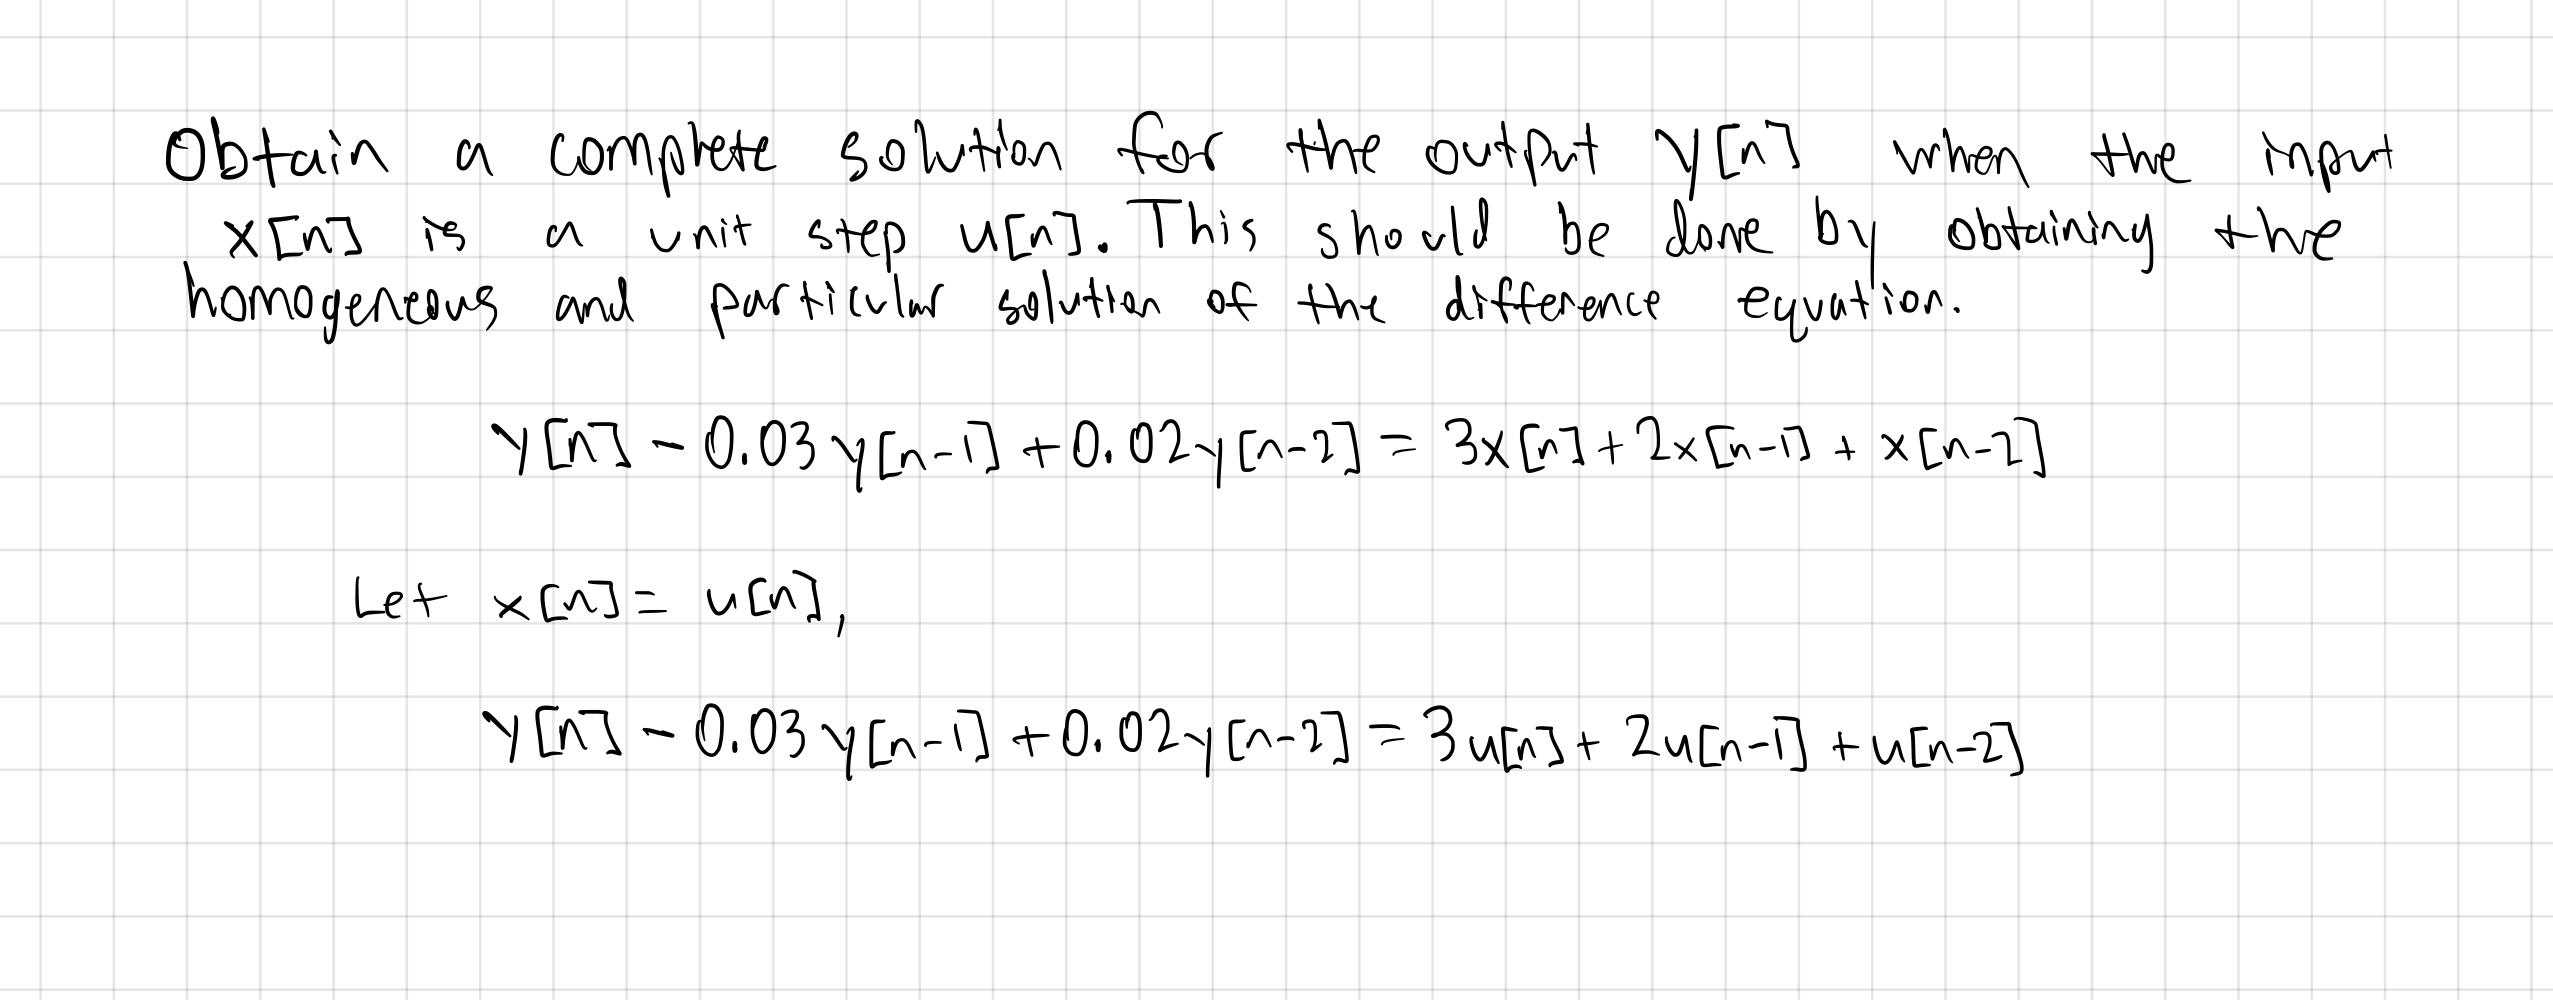 Obtain a complete solution for the output y[n] when the input
x[n] is a unit step u[n]. This should be done by obtaining the
homogeneous and particular solution of the difference equation.
y[n] - 0.03y[n-1] + 0.02y[n-2] = 3x[n] + 2x[n-1] + x[n-2]
Let x[n] = u[n],
y[n] - 0.03y[n-1] + 0.02y[n-2] = 3u[n] + 2u[n-1] + u[n-2]